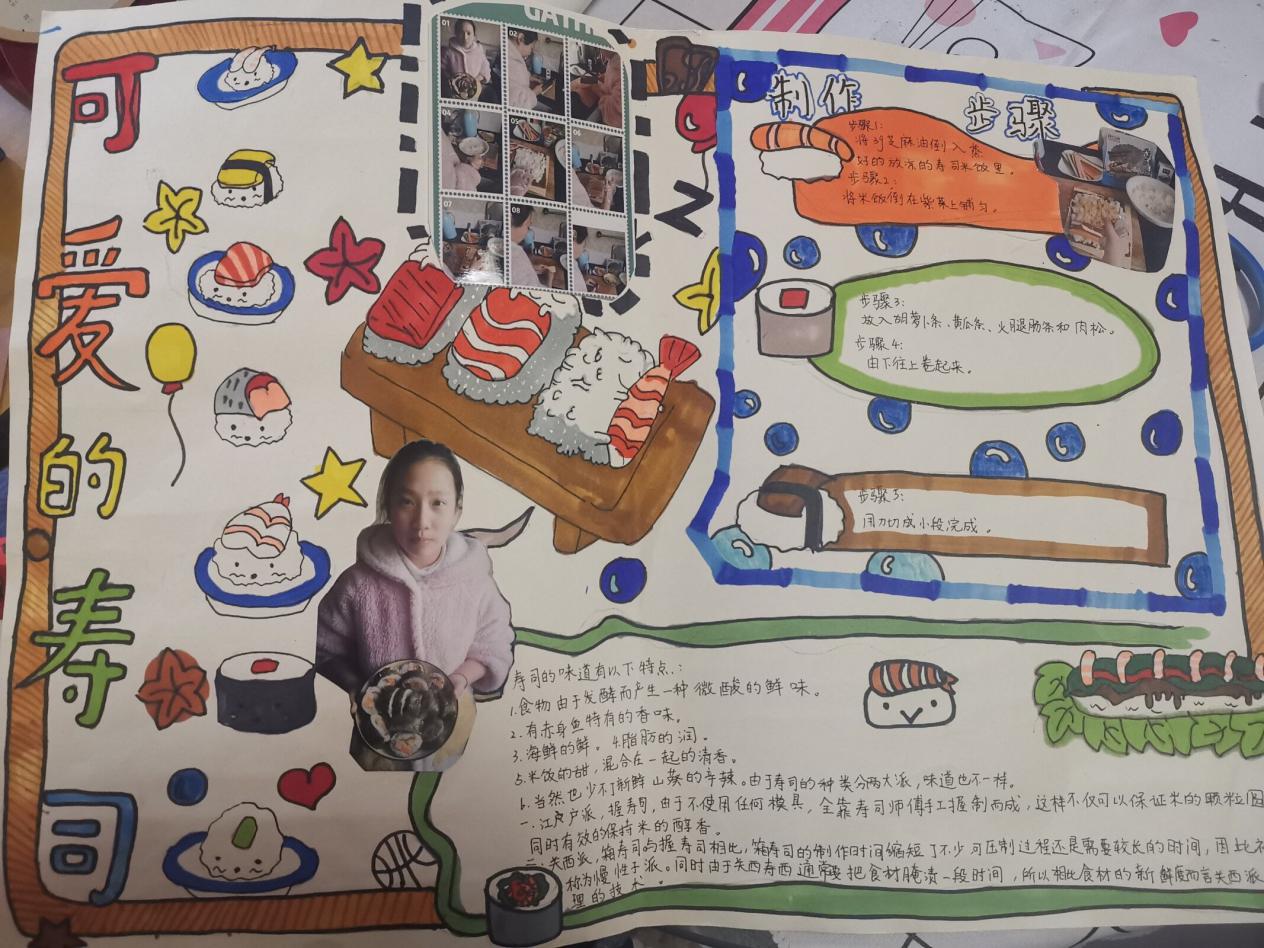 可爱的寿司
01
02
03
04
05
06
07
08
制作 步骤
步骤1:
好的放凉的寿司米饭里。
步骤2:
将米饭倒在紫菜上铺匀。
步骤3:
放入胡萝卜条、黄瓜条、火腿肠条和肉松。
步骤4:
由下往上卷起来。
步骤5:
用刀切成小段完成。
寿司的味道有以下特点:
1.食物由于发酵而产生一种微酸的鲜味。
2.有赤身鱼特有的香味。
3.海鲜的鲜。4.脂肪的润。
5.米饭的甜,混合在一起的清香。
6.当然也少不了新鲜山葵的辛辣。由于寿司的种类分两大派,味道也不一样。
一.江户户派,握寿司,由于不使用任何模具,全靠寿司师傅手工握制而成,这样不仅可以保证米的颗粒圆
同时有效的保持米的醇香。
二:关西派,箱寿司与握寿司相比,箱寿司的制作时间缩短了不少可压制过程还是需要较长的时间,因此
称为慢性子派。同时由于关西寿西通常要把食材腌渍一段时间,所以相比食材的新鲜度而言关西派
理的技术。